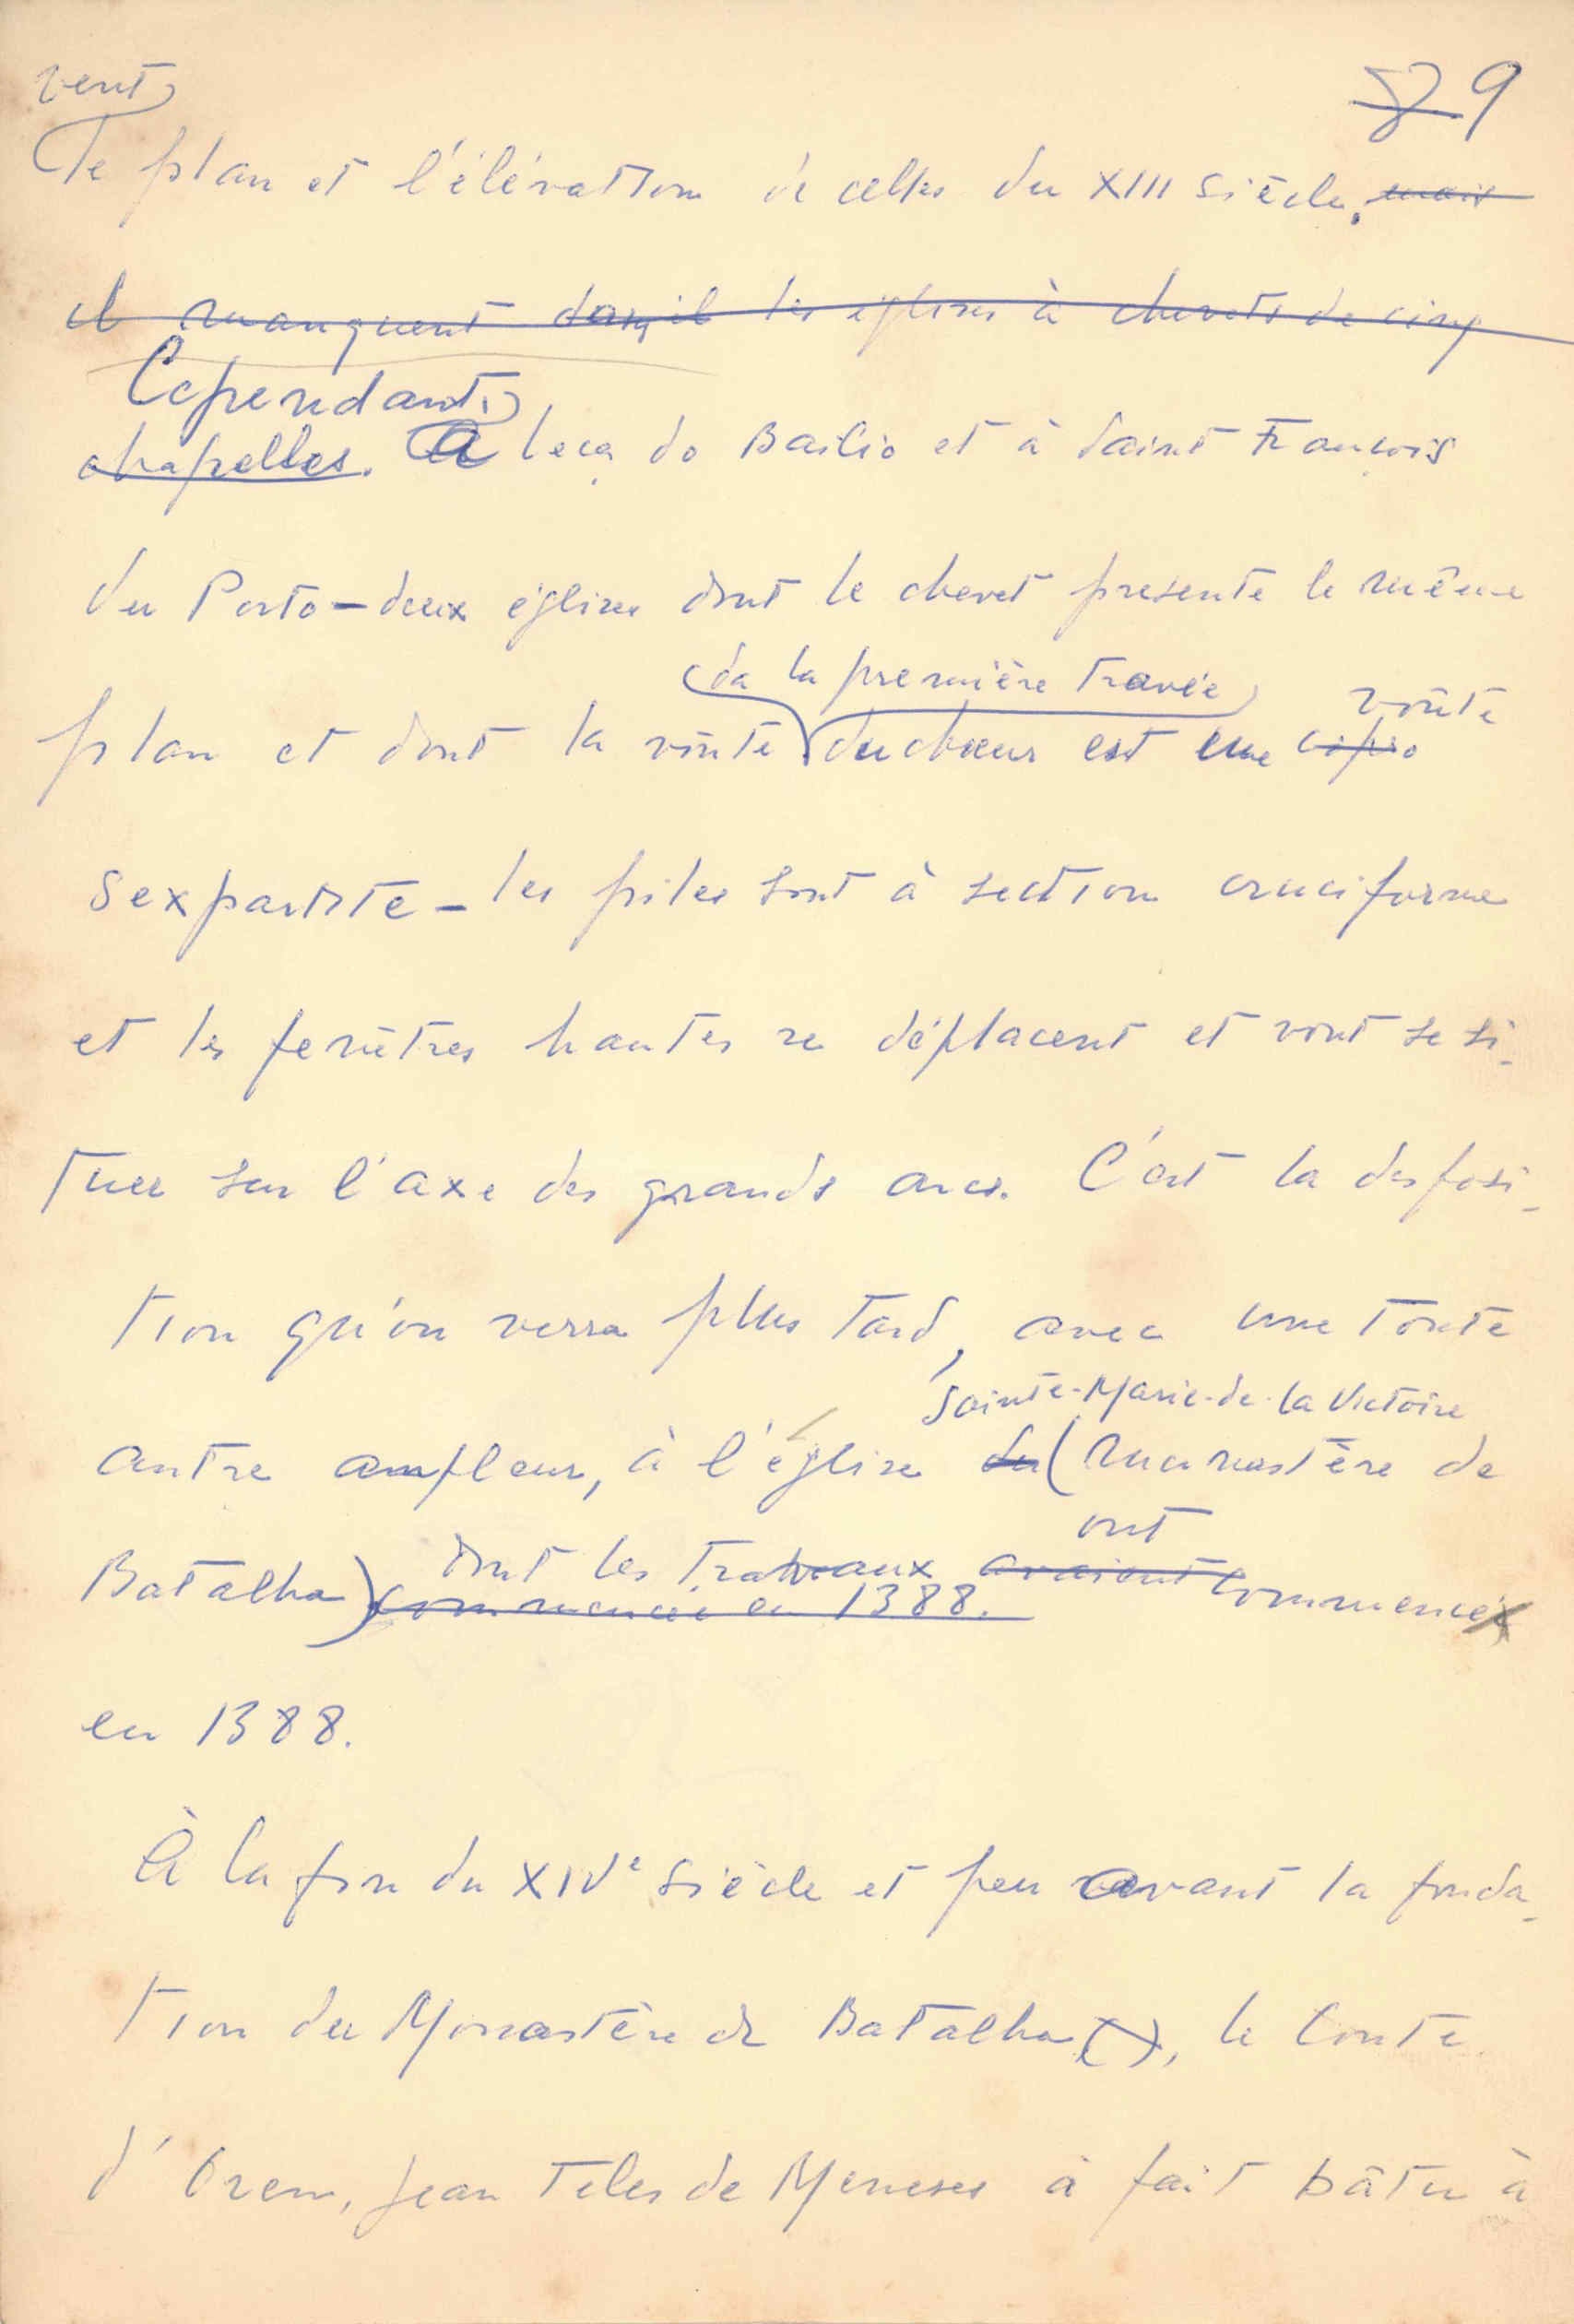 vent
8 9
le plan et l'élévation de celles du XIII siècle. mais
il manquent les églises à chevets de cinq
Cependant,
chapelles. A Leça do Bailio et à Saint François
du Porto - deux églises dont le chevet presente le même
da la première travée voûte
plan et dont la voûte du chœur est une
sexpartite - les piles sont à section cruciforme
et les fenêtres hautes se déplacent et vont se si-
tuer sur l'axe des grands arcs. C'est la desposi-
tion qu'on verra plus tard, avec une toute
Sainte-Marie-de-la Victoire
autre ampleur, à l'église du (monastère de
ont
dont les travaux avaient commencé
Batalha) commencée en 1388.
en 1388.
À la fin du XIVe siècle et peu avant la fonda-
tion du Monastère de Batalha (x), le Conte
d'Orem, Jean Teles de Meneses à fait bâtir à